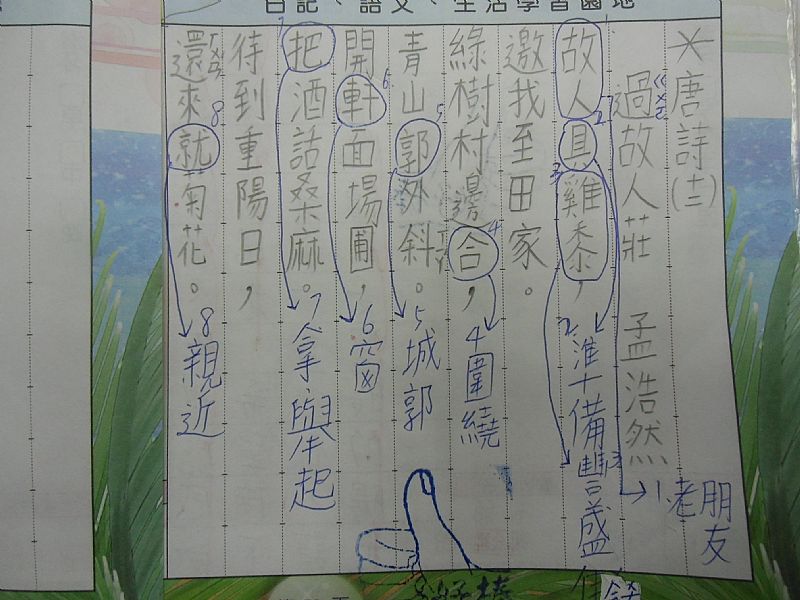 日記、語文、生活學習園地
＊唐詩(十二)
過故人莊 孟浩然
ㄍㄨㄛ
故人具雞黍，
邀我至田家。
綠樹村邊合，
青山郭外斜。
開軒面場圃，
把酒話桑麻。
待到重陽日，
還來就菊花。
1.老朋友
2.準備
3豐盛
4圍繞
5城郭
6窗
7拿、舉起
8親近
好棒